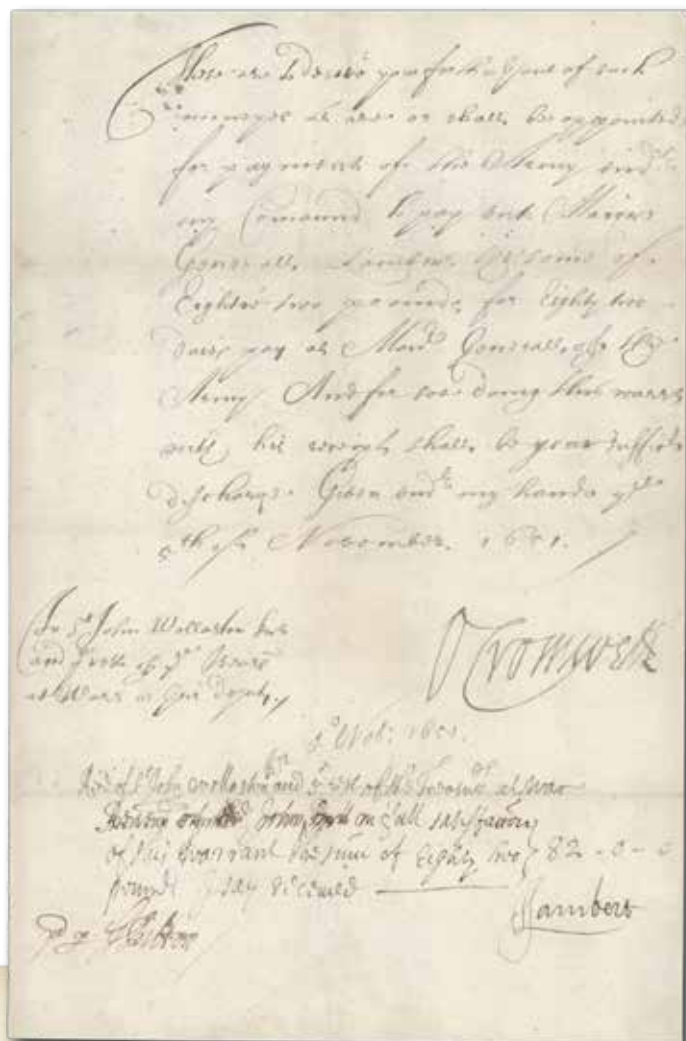 These are to desire you forth & out of such
moneyes as are or shall be appointed
for payment of the Army und^r
my Comand to pay unto Maior
Generall Lambert the some of
Eightie two pounds for Eighty two
daies pay as Maio^r Generall of the
Army And for soe doing this warr^t
with his receipt shall be your suffici^t
discharge Given und^r my hand y^e
5th of November. 1651.
To S^r John Wollaston kn^t
and y^e rest of y^e Trears
at Warr or their Deputy
O Cromwell
5^o Nov: 1651.
Rec^d of S^r John Wollaston kn^t and y^e rest of the Treasur^rs at War
John in full satisfaction
of this warrant the sum of Eighty two 82 - 0 - 0
pounds I say received
J Lambert